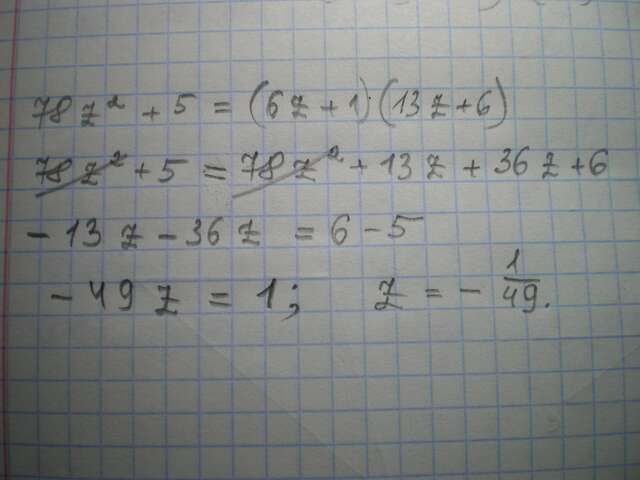 78z² + 5 = (6z + 1)·(13z + 6)
78z² + 5 = 78z² + 13z + 36z + 6
- 13z - 36z = 6 - 5
- 49z = 1; z = - 1/49.